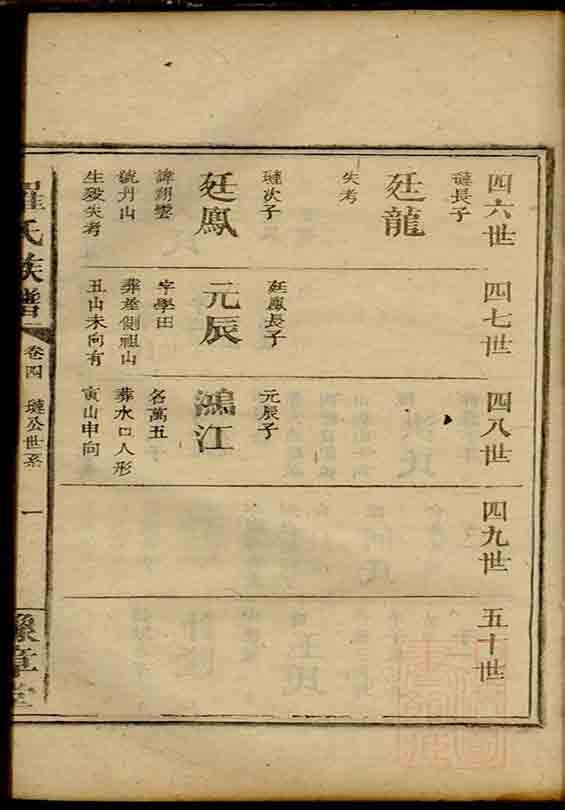 四六世
璉長子
廷龍
失考
璉次子
廷鳳
諱翔雲
號丹山
生歿失考
四七世
廷鳳長子
元辰
字學田
葬屋側祖山
丑山未向有
四八世
元辰子
鴻江
名萬五
葬水口人形
寅山申向
四九世
五十世
羅氏族譜
卷四
璉公世系
一
豫章堂